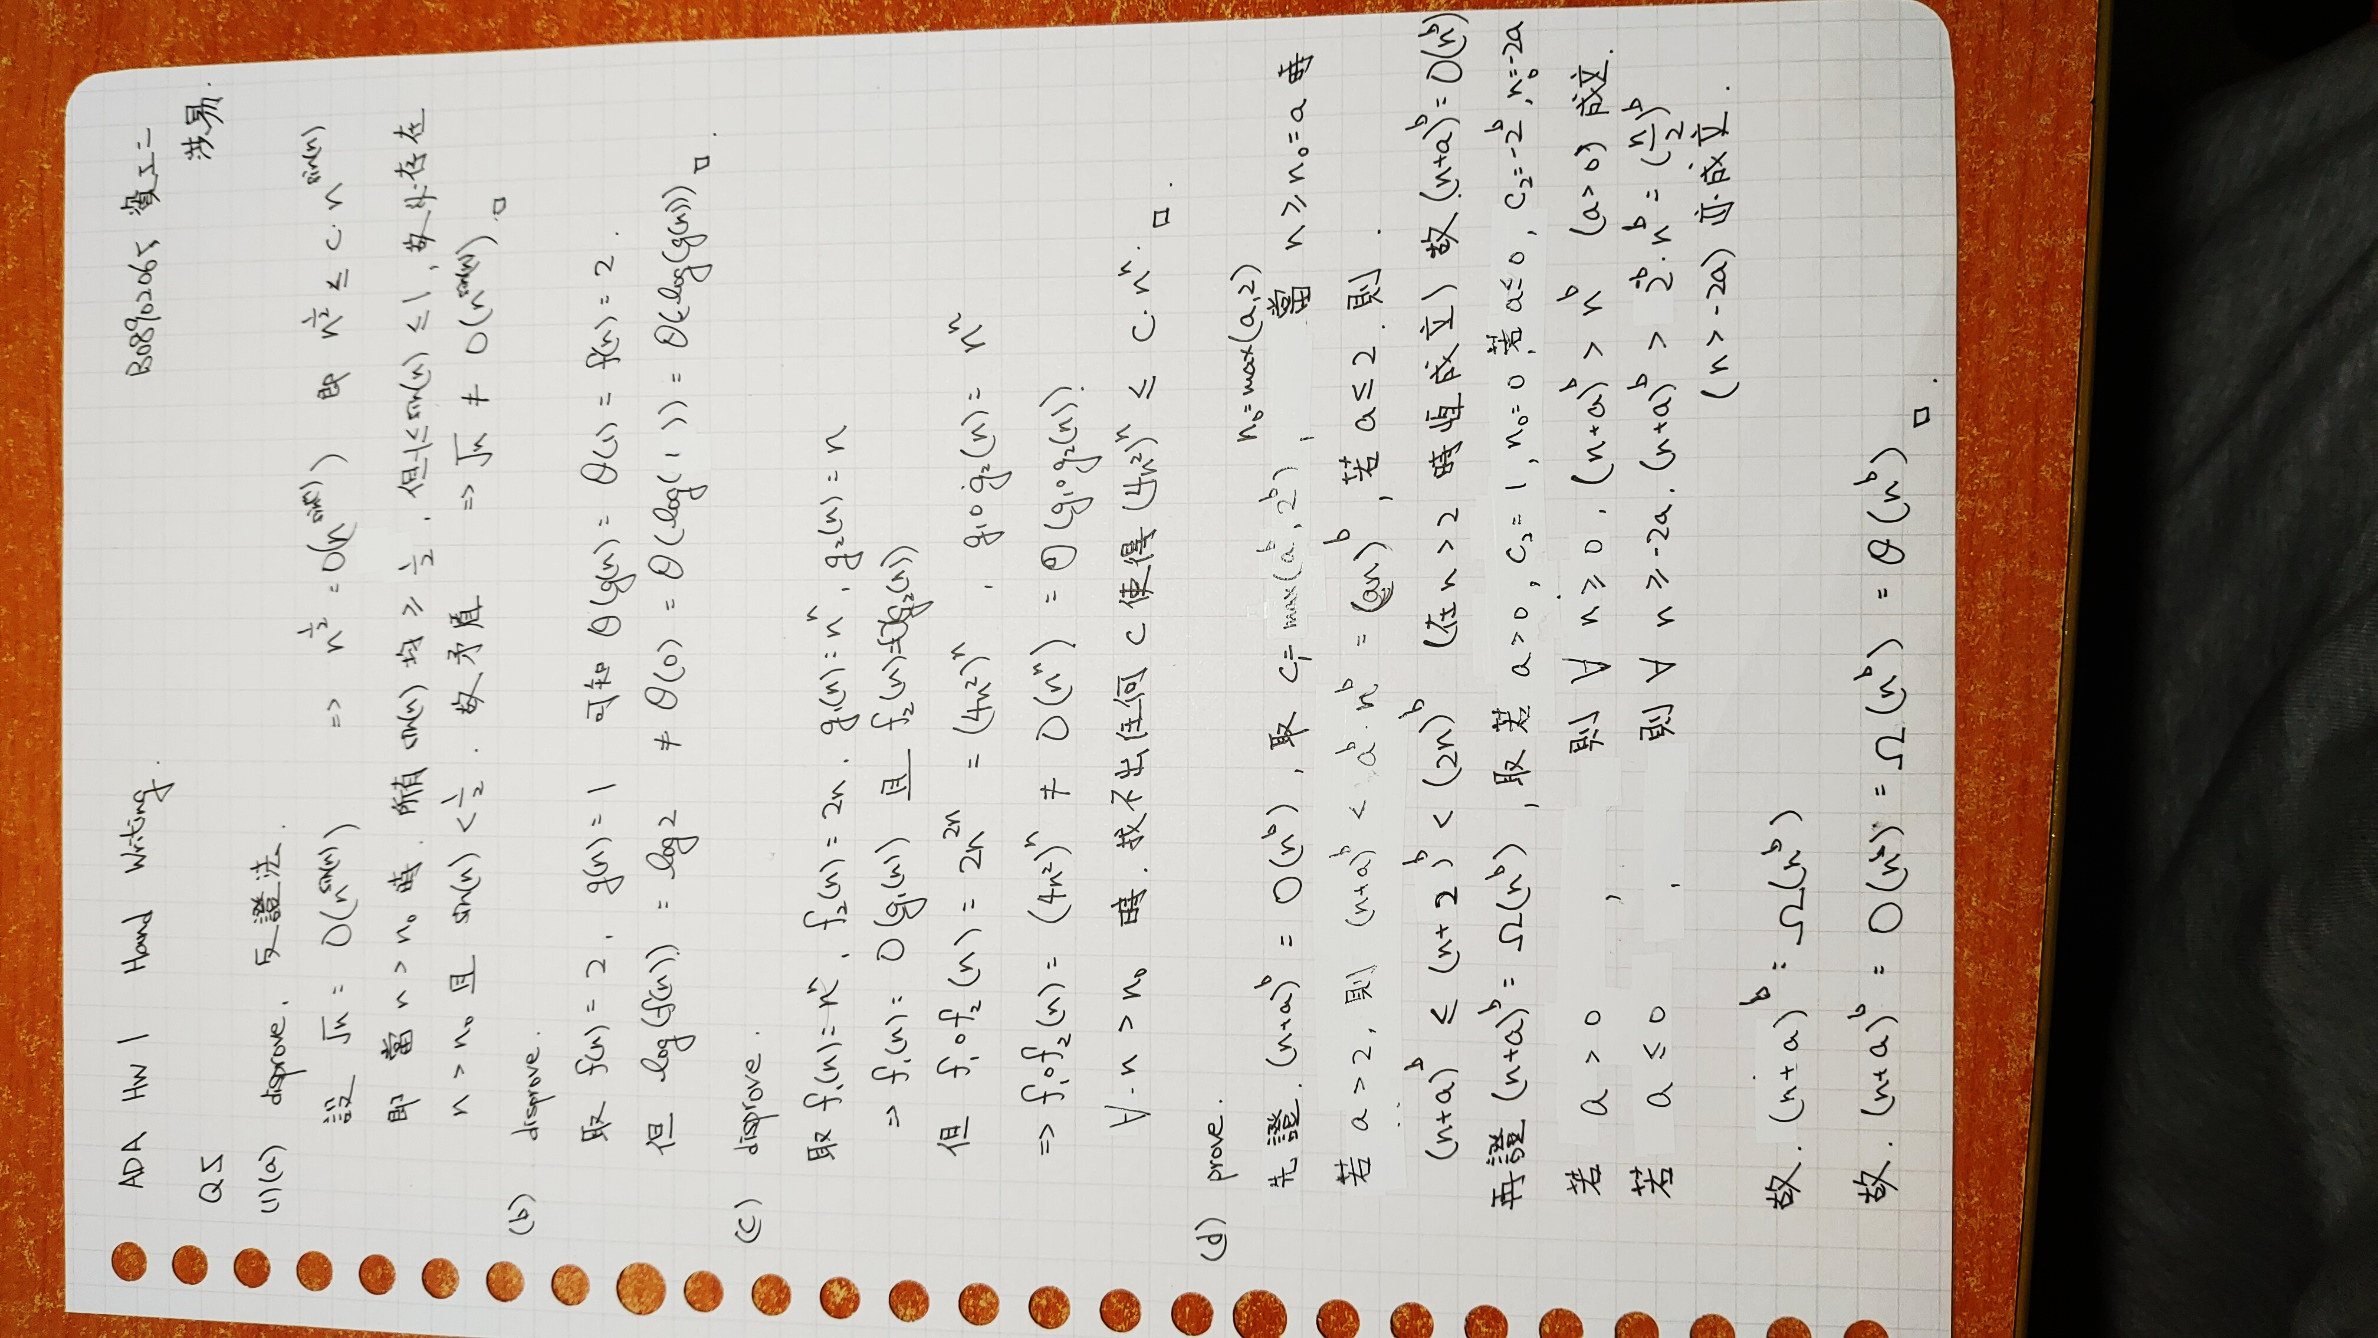 ADA HW 1 Hand Writing. B08902065 資工二
Q5 涉易.
(1)(a) disprove. 反證法.
設 √n = O(n^sin(n)) => n^½ = O(n^sin(n)) 即 n^½ ≤ c·n^sin(n)
即 當 n > n₀ 時. 所有 sin(n) 均 ≥ ½. 但 -1 ≤ sin(n) ≤ 1, 故必存在
n > n₀ 且 sin(n) < ½. 故矛盾 => √n ≠ O(n^sin(n)). □
(b) disprove.
取 f(n) = 2. g(n) = 1 可知 θ(g(n)) = θ(1) = f(n) = 2.
但 log(f(n)) = log2 ≠ θ(0) = θ(log(1)) = θ(log(g(n))) □.
(c) disprove.
取 f₁(n) = nⁿ, f₂(n) = 2n. g₁(n) = nⁿ, g₂(n) = n
=> f₁(n) = O(g₁(n)) 且 f₂(n) = O(g₂(n))
但 f₁∘f₂(n) = 2n^2n = (4n²)ⁿ . g₁∘g₂(n) = nⁿ
=> f₁∘f₂(n) = (4n²)ⁿ ≠ O(nⁿ) = θ(g₁∘g₂(n)).
∀. n > n₀ 時. 找不出任何 c 使得 (4n²)ⁿ ≤ c·nⁿ. □.
(d) prove. n₀ = max(a,2)
先證. (n+a)^b = O(n^b), 取 c₁ = max(a^b, 2^b), 當 n ≥ n₀ = a 時
若 a > 2, 則 (n+a)^b < a^b·n^b = (an)^b, 若 a ≤ 2. 則.
(n+a)^b ≤ (n+2)^b < (2n)^b (在 n > 2 時卓成立) 故 (n+a)^b = O(n^b)
再證 (n+a)^b = Ω(n^b), 取若 a > 0, c₂ = 1, n₀ = 0, 若 a ≤ 0, c₂ = -2^b, n₀ = -2a
若 a > 0 , 則 ∀ n ≥ 0. (n+a)^b > n^b (a > 0) 成立.
若 a ≤ 0 , 則 ∀ n ≥ -2a. (n+a)^b > 2^-b·n^b = (n/2)^b
(n > -2a) 亦成立.
故. (n+a)^b = Ω(n^b)
故. (n+a)^b = O(n^b) = Ω(n^b) = θ(n^b) □.